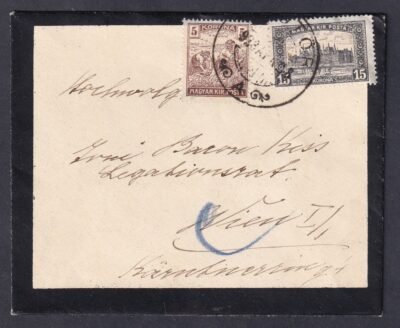 5 KORONA
MAGYAR KIR. POSTA
MAGYAR KIR. POSTA
15 KORONA 15
Hochwolg.
Toni Baron Kiss
Legationsrat
Wien I/1
Kärntnerring